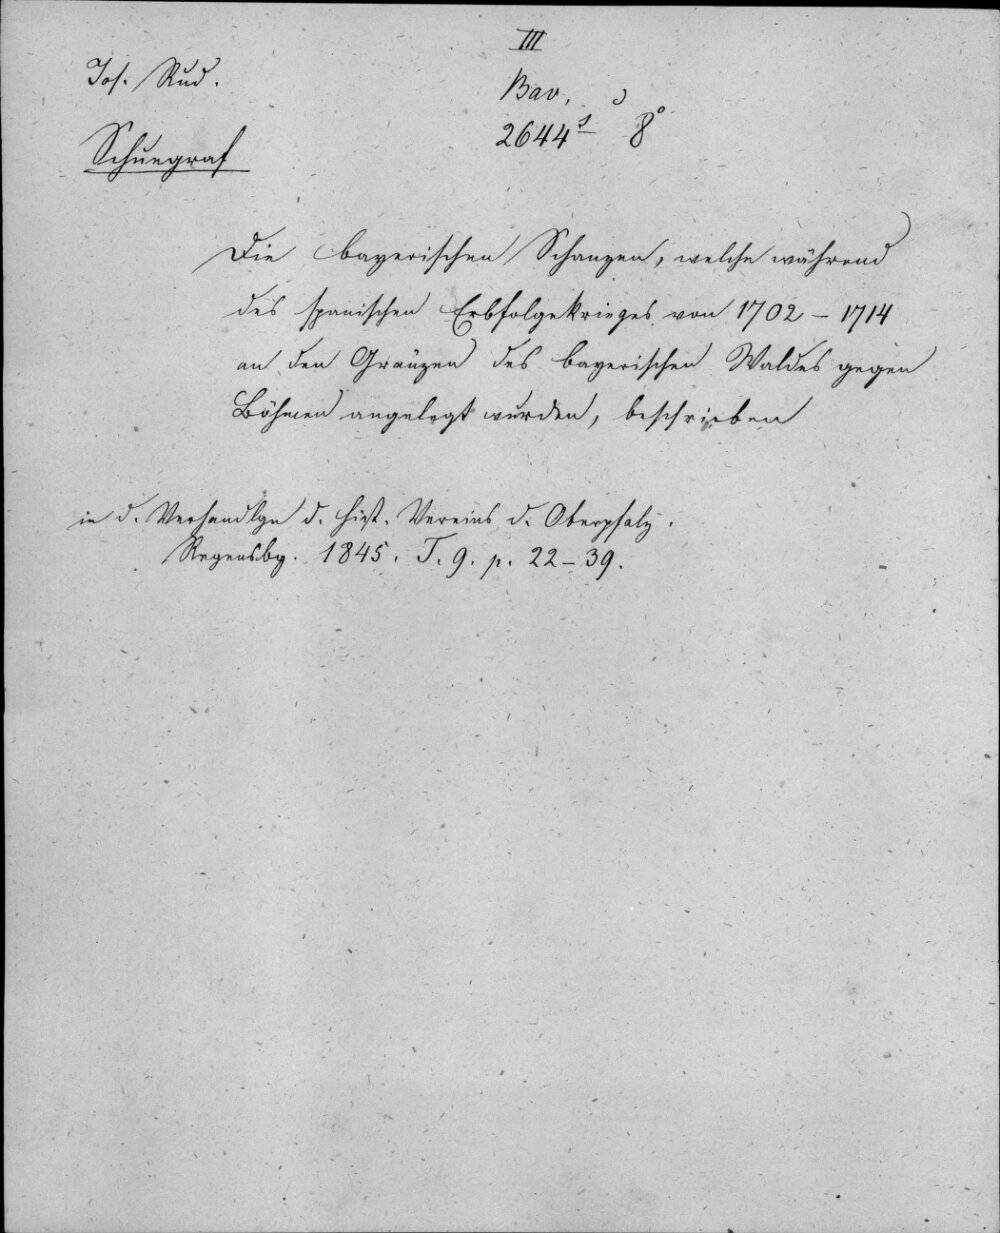 III
Jos. Rud.
Bav.
2644 s 8°
Schuegraf
Die bayerischen Schanzen, welche während
des spanischen Erbfolgekrieges von 1702 – 1714
an den Gränzen des bayerischen Waldes gegen
Böhmen angelegt wurden, beschrieben
in d. Verhandlgn d. hist. Vereins d. Oberpfalz.
Regensbg. 1845. T. 9. p. 22–39.